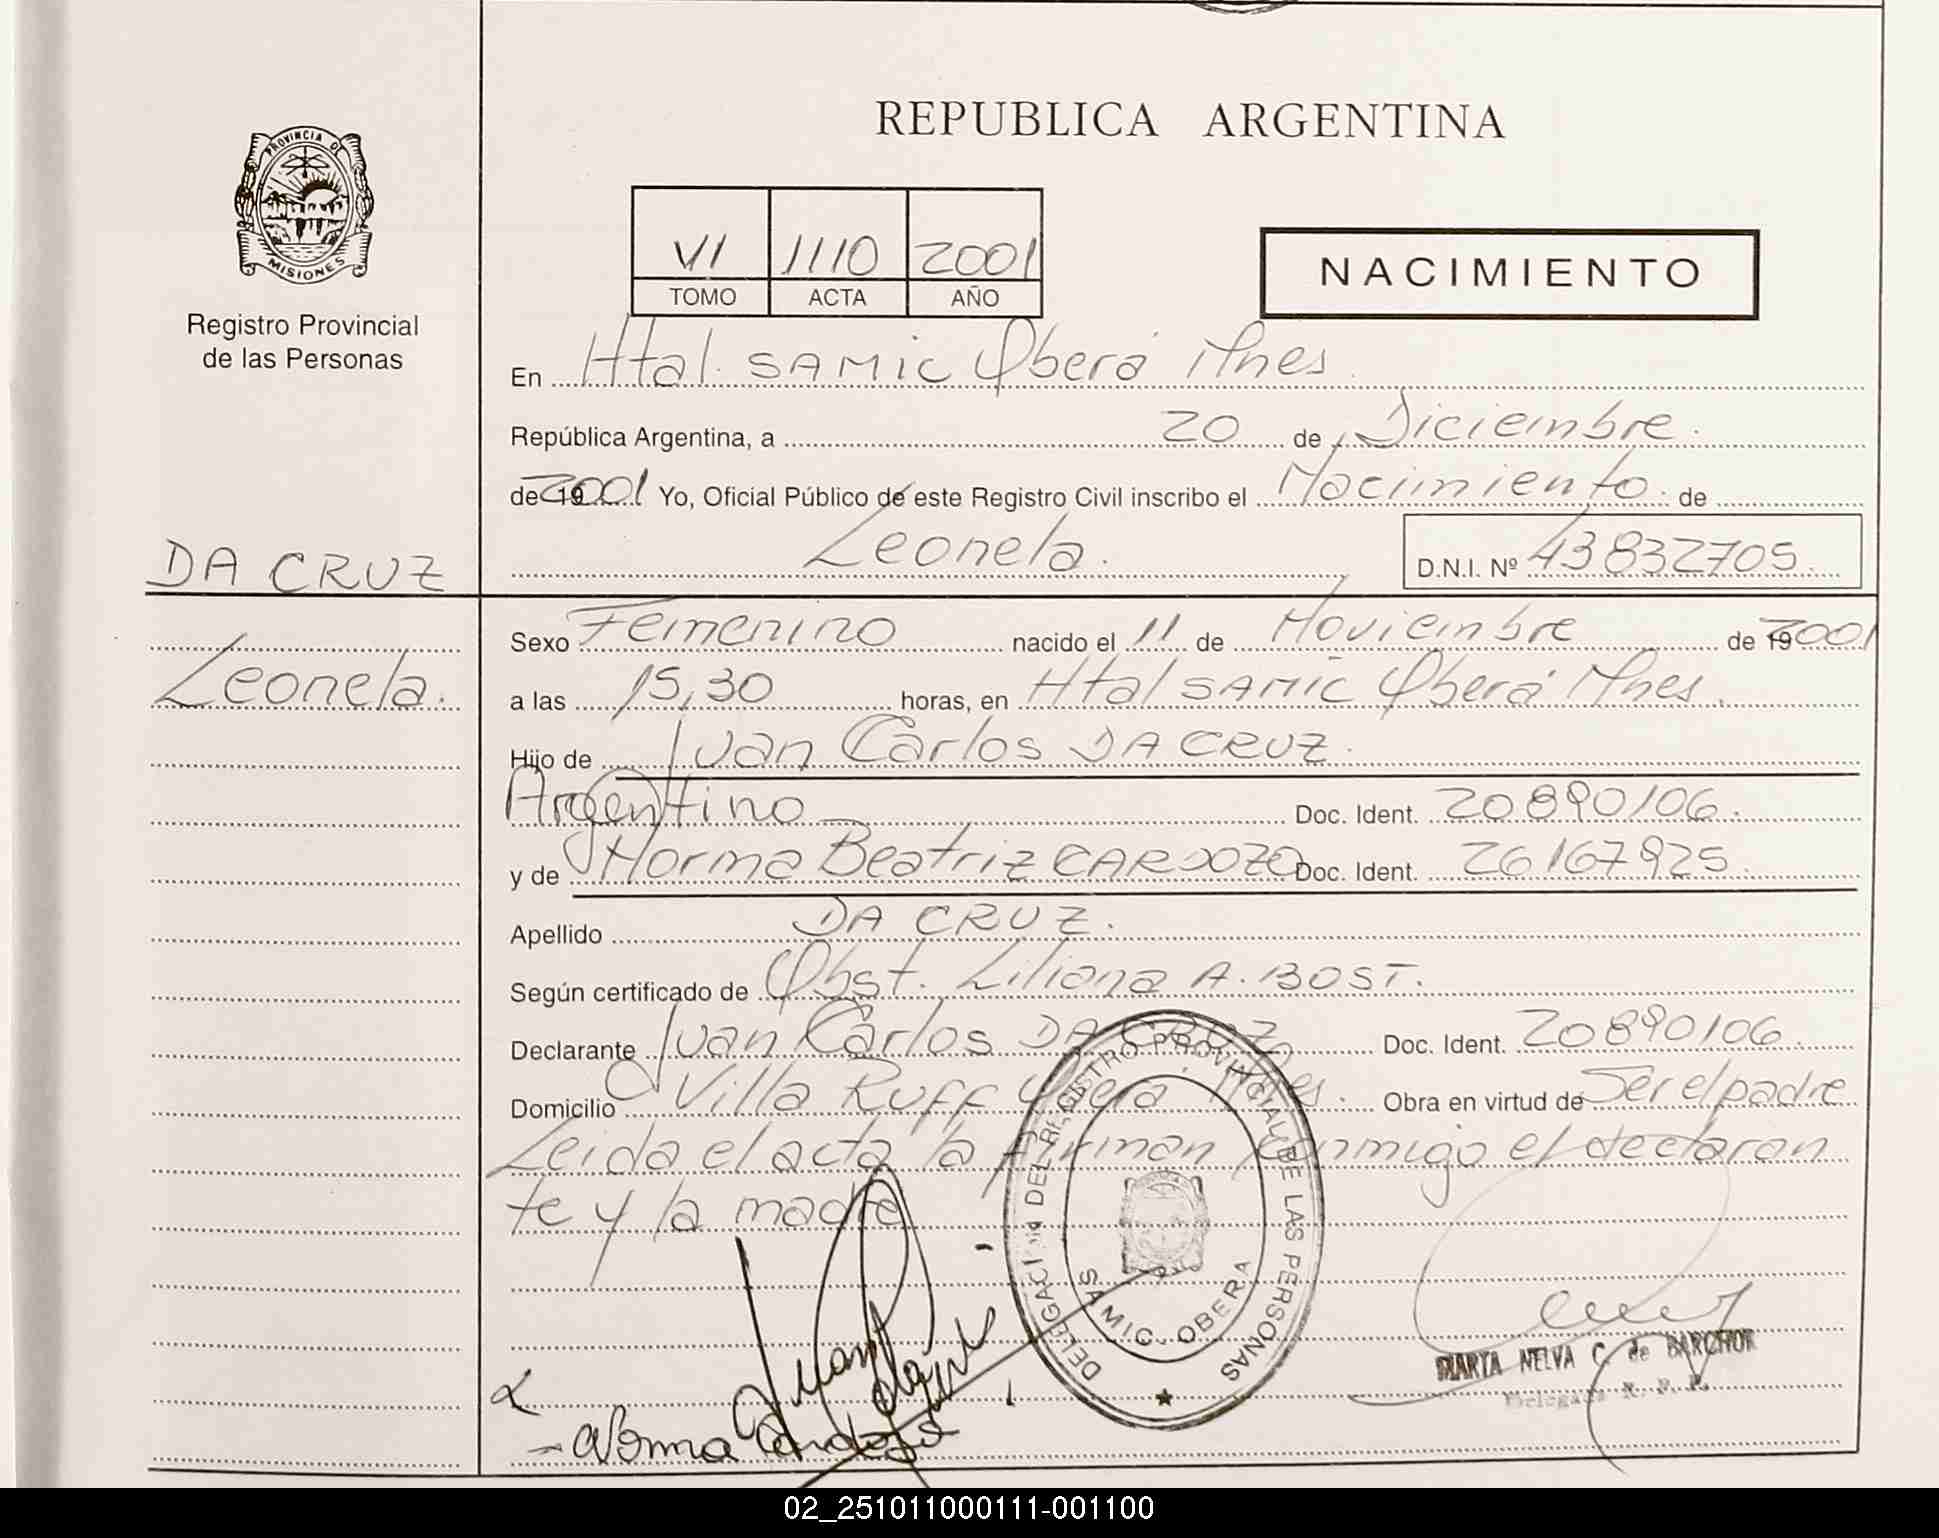 REPUBLICA ARGENTINA
PROVINCIA DE
MISIONES
Registro Provincial
de las Personas
VI 1110 2001
TOMO ACTA AÑO
NACIMIENTO
En Htal. SAMIC Oberá Mnes
República Argentina, a 20 de Diciembre.
de 2001 Yo, Oficial Público de este Registro Civil inscribo el Nacimiento de
Leonela. D.N.I. Nº 43832705
DA CRUZ
Leonela.
Sexo Femenino nacido el 11 de Noviembre de 2001
a las 15,30 horas, en Htal SAMIC Oberá Mnes.
Hijo de Juan Carlos DA CRUZ.
Argentino Doc. Ident. 20890106.
y de Norma Beatriz CARDOZO Doc. Ident. 26167925.
Apellido DA CRUZ.
Según certificado de Obst. Liliana A. BOST.
Declarante Juan Carlos DA CRUZ Doc. Ident. 20890106.
Domicilio Villa Ruff Oberá Mnes. Obra en virtud de Ser el padre
Leida el acta la firman conmigo el declaran
te y la madre
DELEGACION DEL REGISTRO PROVINCIAL DE LAS PERSONAS
SAMIC - OBERA
Juan
Norma Cardozo
MARTA NELVA C. de BARCHUK
Delegada R. P. P.
02_251011000111-001100